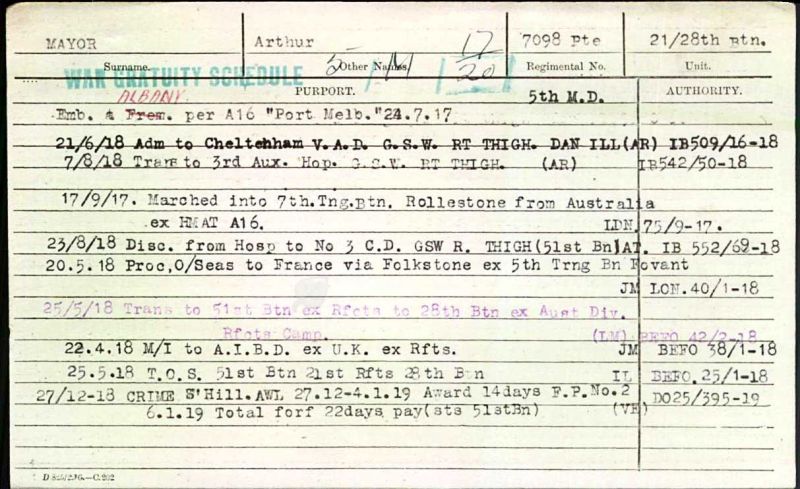 MAYOR Arthur 7098 Pte 21/28th Btn.
Surname. Other Names. 5 / M / 17/20 Regimental No. Unit.
WAR GRATUITY SCHEDULE
PURPORT. 5th M.D. AUTHORITY.
ALBANY
Emb. & From. per A16 "Port Melb." 24.7.17
21/6/18 Adm to Cheltehham V.A.D. G.S.W. RT THIGH. DAN ILL(AR) IB509/16-18
7/8/18 Trans to 3rd Aux. Hop. G.S.W. RT THIGH. (AR) IB542/50-18
17/9/17. Marched into 7th.Tng.Btn. Rollestone from Australia
ex HMAT A16. LDN.75/9-17.
23/8/18 Disc. from Hosp to No 3 C.D. GSW R. THIGH(51st Bn)AT. IB 552/69-18
20.5.18 Proc,O/Seas to France via Folkstone ex 5th Trng Bn Fovant
JM LON.40/1-18
25/5/18 Trans to 51st Btn ex Rfcts to 28th Btn ex Aust Div.
Rfcts Camp. (LM) BEFO 42/2-18
22.4.18 M/I to A.I.B.D. ex U.K. ex Rfts. JM BEFO 38/1-18
25.5.18 T.O.S. 51st Btn 21st Rfts 28th Btn IL BEFO.25/1-18
27/12-18 CRIME S'Hill.AWL 27.12-4.1.19 Award 14days F.P.No.2 DO25/395-19
6.1.19 Total forf 22days pay(sts 51stBn) (VH)